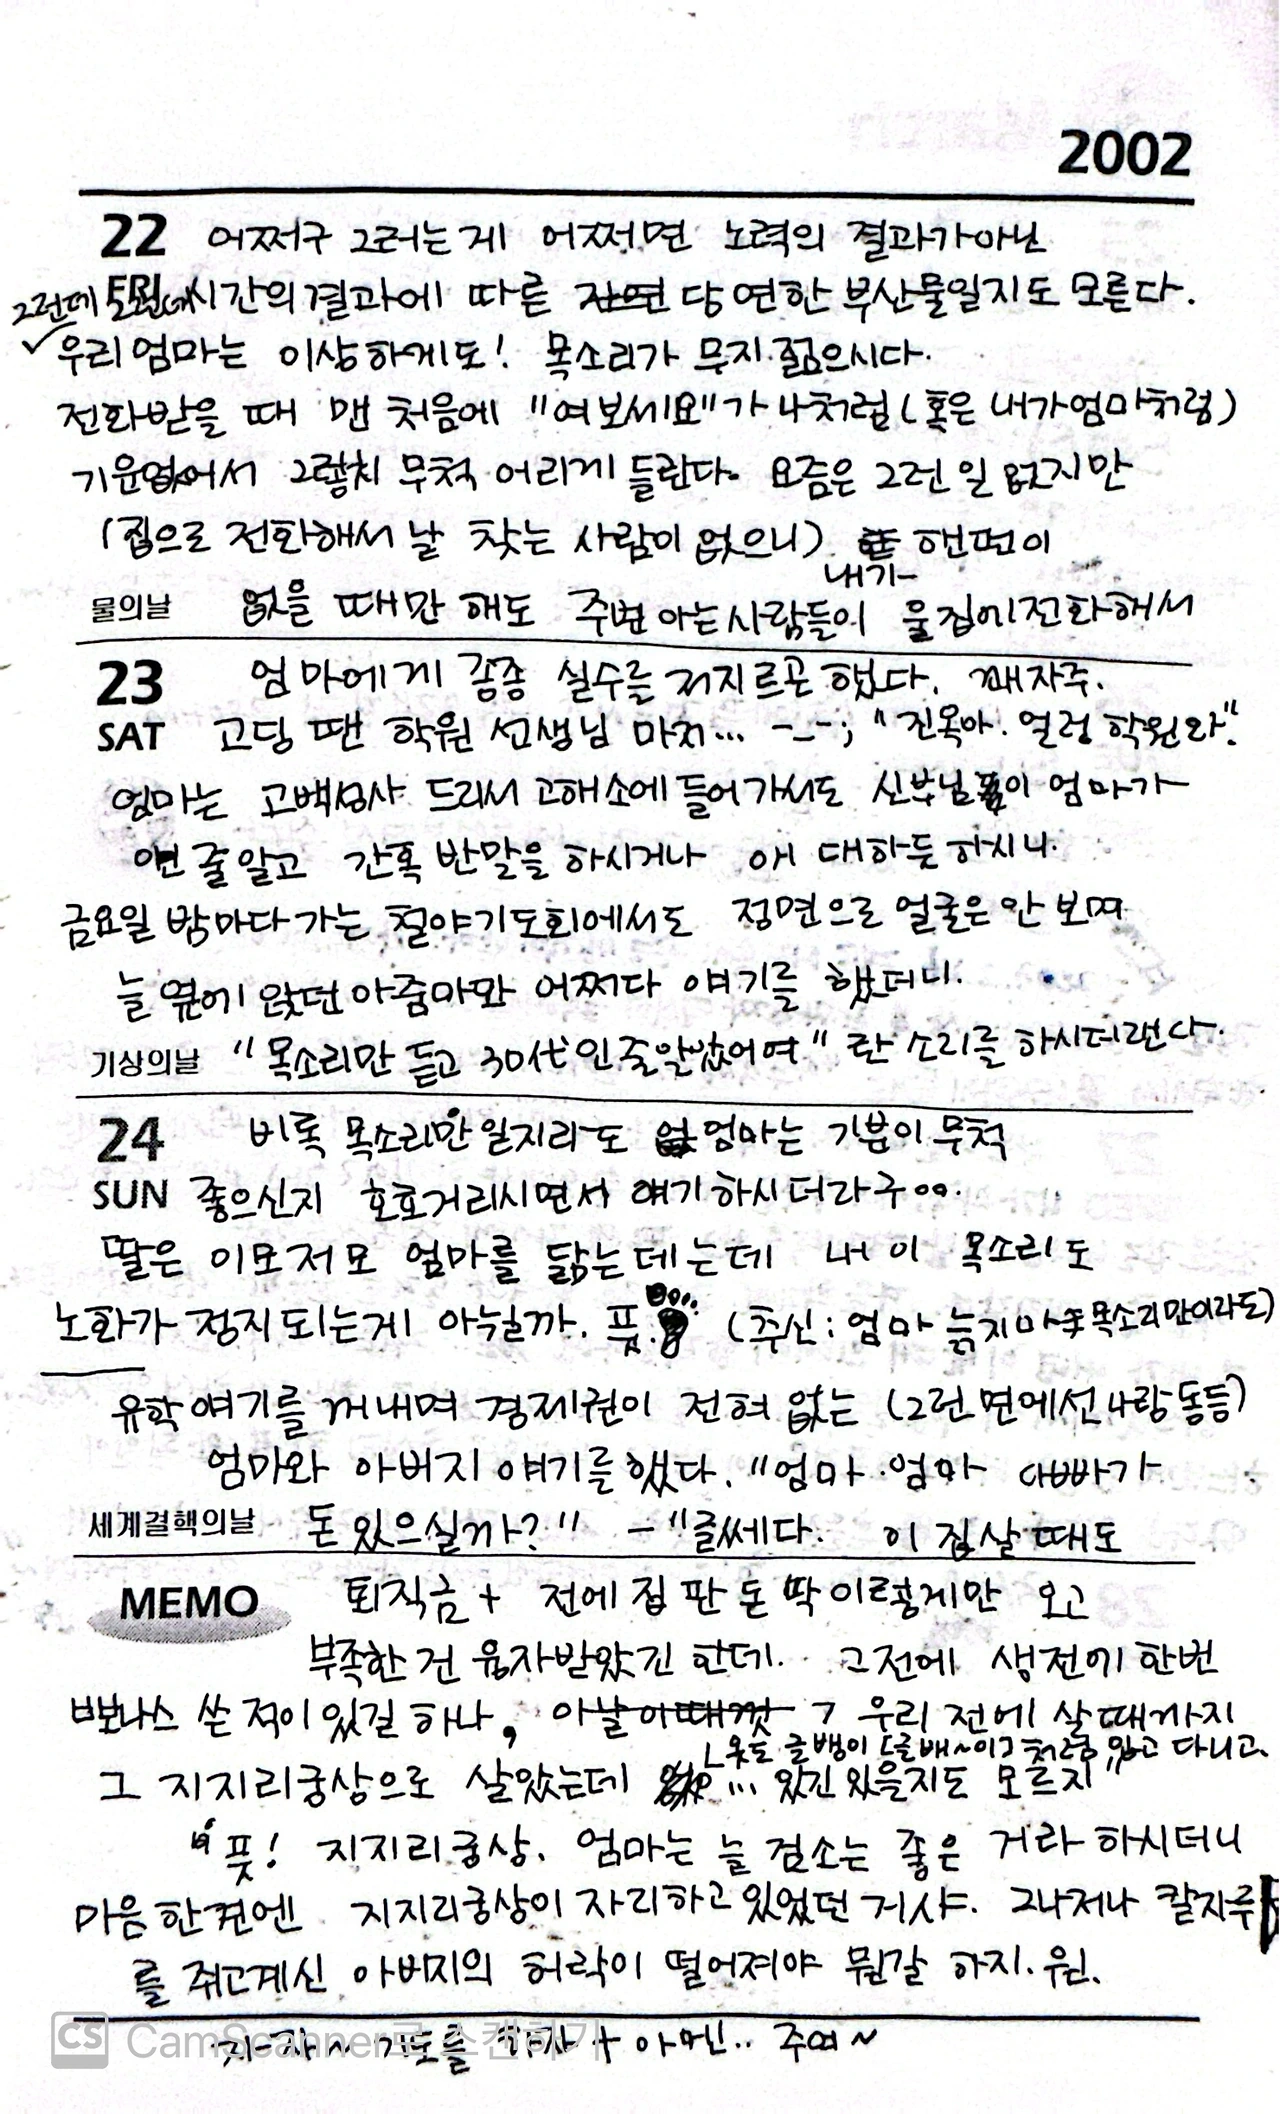 2002
22 어쩌구 그러는게 어쩌면 노력의 결과가아닌
그런데 FRI 시간의 결과에 따른 당연한 부산물일지도 모른다.
✓우리엄마는 이상하게도! 목소리가 무지 젊으시다.
전화받을 때 맨 처음에 "여보세요"가 나처럼 (혹은 내가엄마처럼)
기운없어서 그렇치 무척 어리게 들린다. 요즘은 그런 일 없지만
(집으로 전화해서 날 찾는 사람이 없으니). 핸펀이
내가
물의날 없을 때만 해도 주변 아는사람들이 울집에전화해서
23 엄마에게 종종 실수를 저지르곤 했다. 꽤자주.
SAT 고딩 땐 학원 선생님 마저... -_-; "진옥아. 얼렁 학원와."
엄마는 고백성사 드리서 고해소에 들어가셔도 신부님이 엄마가
앤 줄알고 간혹 반말을 하시거나 애 대하듯 하시나.
금요일 밤마다 가는 철야기도회에서도 정면으로 얼굴은 안 보며
늘 옆에 앉던 아줌마와 어쩌다 얘기를 했더니.
기상의날 "목소리만 듣고 30代인줄알았어여" 란 소리를 하시더랜다.
24 비록 목소리만 일지라도 엄마는 기분이 무척
SUN 좋으신지 호호거리시면서 얘기하시더라구..
딸은 이모저모 엄마를 닮는데는데 내 이 목소리도
노화가 정지되는게 아뉠까. 풋. (추신: 엄마 늙지마 목소리만이라도)
유학얘기를 꺼내며 경제권이 전혀 없는 (그런면에선 나랑동등)
엄마와 아버지 얘기를 했다. "엄마. 엄마 아빠가
세계결핵의날 돈 있으실까?" - "글쎄다. 이 집살 때도
MEMO 퇴직금 + 전에 집 판 돈 딱 이렇게만 오고
부족한 건 융자받았긴 한데. 그전에 생전에 한번
뽀나스 쓴 적이 있길 하나, 우리 전에 살 때까지
옷도 글뱅이 [글배~이] 처럼 입고 다니고.
그 지지리궁상으로 살았는데 ... 있긴 있을지도 모르지"
"풋! 지지리궁상. 엄마는 늘 검소는 좋은 거라 하시더니
마음 한켠엔 지지리궁상이 자리하고 있었던 거샤. 그나저나 칼자루
를 쥐고계신 아버지의 허락이 떨어져야 뭔갈 하지. 원.
자-자~ 기도를 하자 + 아멘.. 주여~
CS CamScanner로 스캔하기